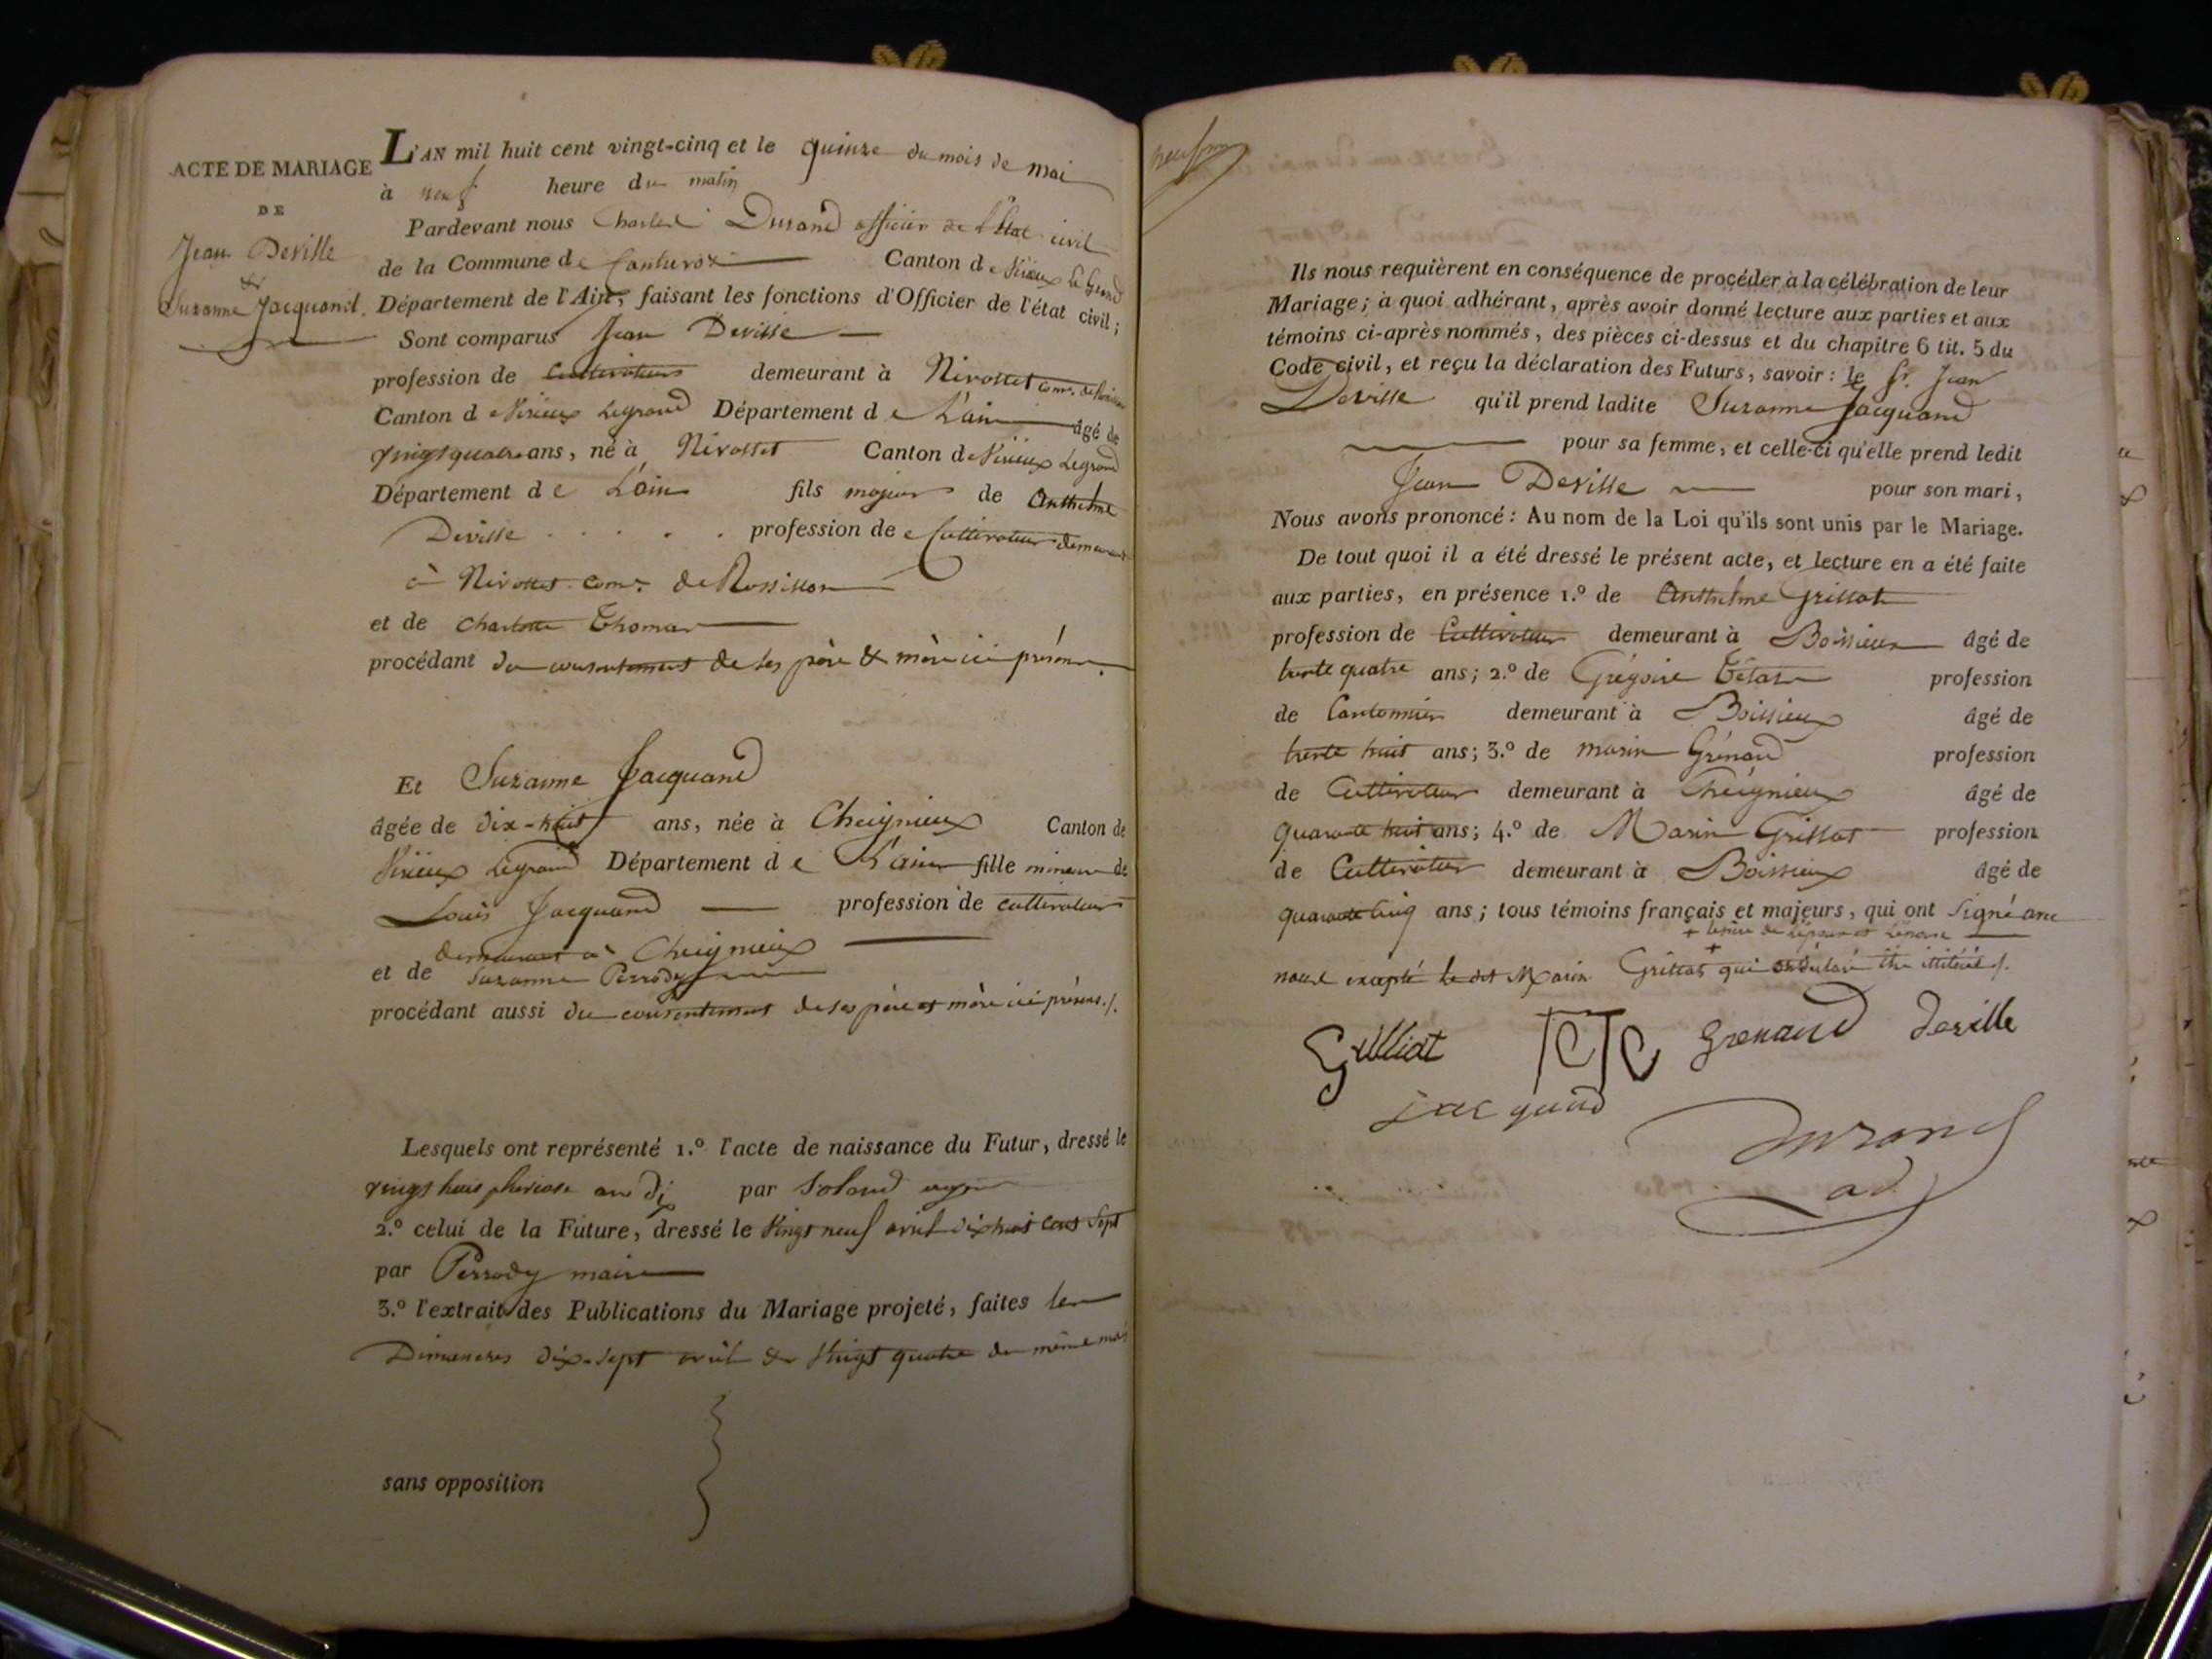 ACTE DE MARIAGE
DE
Jean Deville
&
Suzanne Jacquand.
L'AN mil huit cent vingt-cinq et le quinze du mois de mai
à neuf heure du matin
Pardevant nous Charles Durand officier de l'état civil
de la Commune de Canton de Virieux le Grand
Département de l'Ain, faisant les fonctions d'Officier de l'état civil ;
Sont comparus Jean Deville
profession de Cultivateur demeurant à Nivollet
Canton de Virieux Legrand Département de L'ain âgé de
vingt quatre ans, né à Nivollet Canton de Virieux Legrand
Département de L'ain fils majeur de Anthelme
Deville profession de Cultivateur demeurant
à Nivollet com.ne de Rossillon
et de Charlotte Thomas
procédant du consentement de ses père & mère ici présens
Et Suzanne Jacquand
âgée de dix-huit ans, née à Cheignieux Canton de
Virieux Legrand Département de L'ain fille mineure de
Louis Jacquand profession de cultivateur
demeurant à Cheignieux
et de Suzanne Perrody
procédant aussi du consentement de ses père et mère ici présens ./.
Lesquels ont représenté 1.º l'acte de naissance du Futur, dressé le
vingt huit pluviose an dix par
2.º celui de la Future, dressé le vingt neuf avril dix huit cent sept
par Perrody maire
3.º l'extrait des Publications du Mariage projeté, faites les
Dimanches dix-sept avril & vingt quatre du même mois
sans opposition
Ils nous requièrent en conséquence de procéder à la célébration de leur
Mariage ; à quoi adhérant, après avoir donné lecture aux parties et aux
témoins ci-après nommés, des pièces ci-dessus et du chapitre 6 tit. 5 du
Code civil, et reçu la déclaration des Futurs, savoir : le Sr. Jean
Deville qu'il prend ladite Suzanne Jacquand
pour sa femme, et celle-ci qu'elle prend ledit
Jean Deville pour son mari,
Nous avons prononcé : Au nom de la Loi qu'ils sont unis par le Mariage.
De tout quoi il a été dressé le présent acte, et lecture en a été faite
aux parties, en présence 1.º de Anthelme Grillat
profession de Cultivateur demeurant à Boissieux âgé de
trente quatre ans ; 2.º de Grégoire Tétaz profession
de Cantonnier demeurant à Boissieux âgé de
trente huit ans ; 3.º de marin Grénaud profession
de Cultivateur demeurant à Cheignieux âgé de
quarante huit ans ; 4.º de Marin Grillat profession
de Cultivateur demeurant à Boissieux âgé de
quarante cinq ans ; tous témoins français et majeurs, qui ont signé avec
nous excepté le dit Marin Grillat qui
Grilliat Grenaud deville
jacquand
Durand
ad.